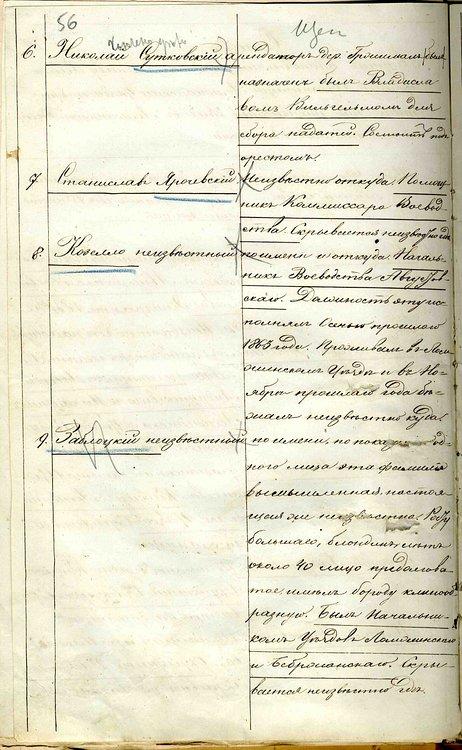 56
6. Николай Сутковский арендаторъ дер. Гришманы былъ
назначенъ былъ Владисла
вомъ Вильгельмомъ для
сбора податей. Состоитъ подъ
арестомъ.
7 Станиславъ Ярочевский Неизвѣстно откуда. Помощ
никъ Коммиссара Воевод
ства. Скрывается неизвѣстно гдѣ
8. Козелло неизвѣстный по имени и откуда. Началь
никъ Воеводства Августов
скаго. Должность эту ис
полнялъ Осенью прошлаго
1863 года. Проживалъ въ Лом
жинскомъ Уѣздѣ и въ Но
ябрѣ прошлаго года бѣ
жалъ неизвѣстно куда.
9. Заблоцкий неизвѣстный по имени, по показанію од
ного лица эта фамилія
вымышленная, настоя
щая же неизвѣстна. Росту
большаго, блондинъ, лѣтъ
около 40 лицо продолгова
тое, имѣлъ бороду клинооб
разную. Былъ Начальни
комъ Уѣздовъ Ломжинскаго
и Бебржанскаго. Скры
вается неизвѣстно гдѣ.